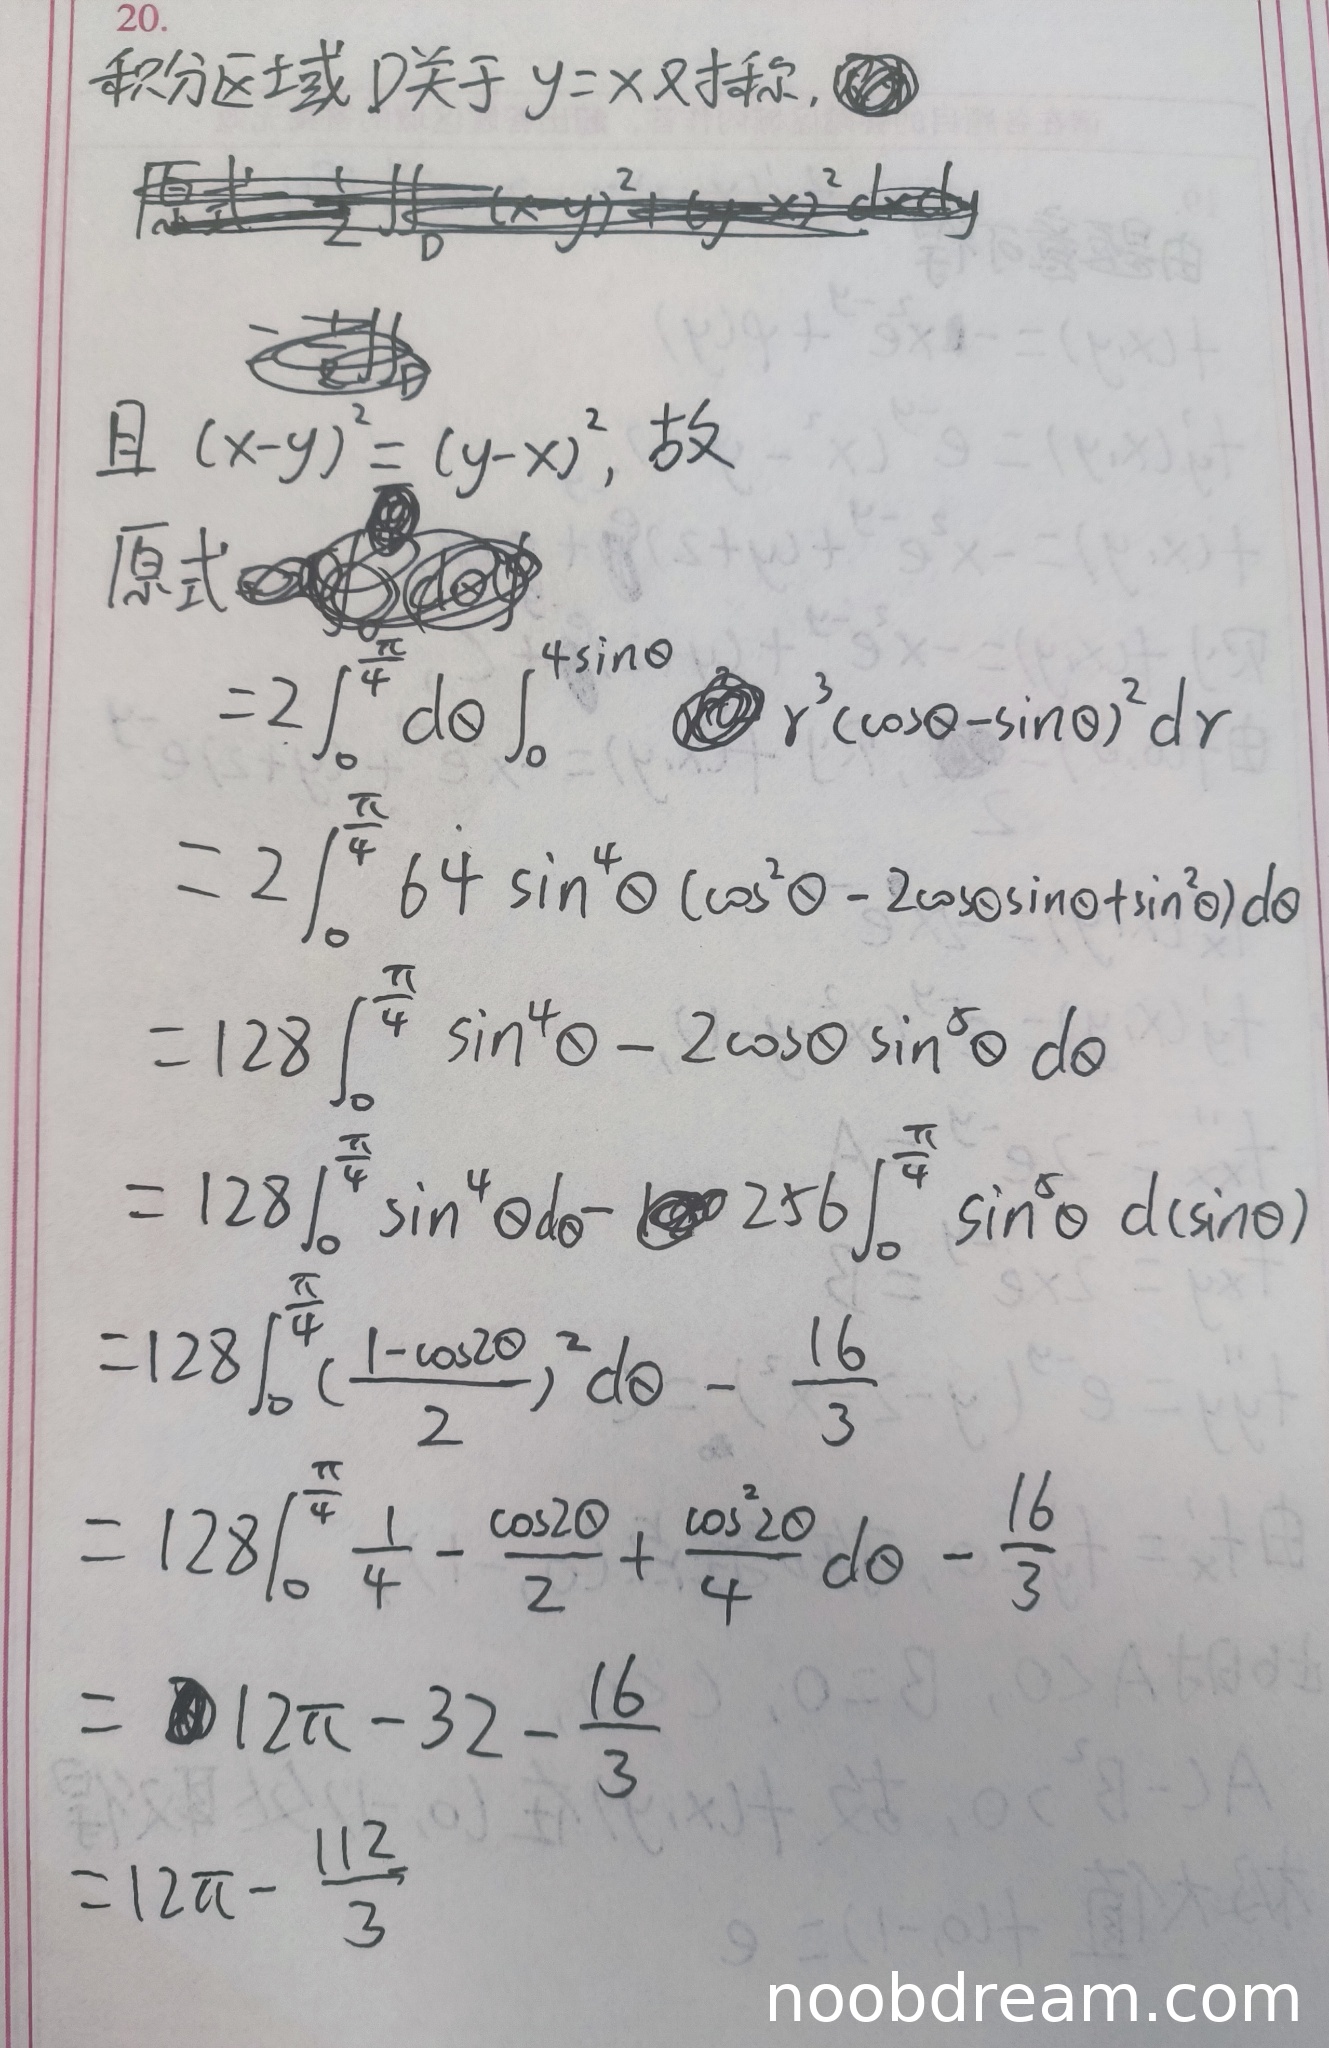 20.
积分区域 D关于 y=x 对称,
且 (x-y)² = (y-x)², 故
原式
=2∫₀^(π/4) dθ ∫₀^(4sinθ) r³(cosθ-sinθ)²dr
=2∫₀^(π/4) 64 sin⁴θ (cos²θ - 2cosθsinθ+sin²θ)dθ
=128∫₀^(π/4) sin⁴θ - 2cosθ sin⁵θ dθ
=128∫₀^(π/4) sin⁴θdθ - 256∫₀^(π/4) sin⁵θ d(sinθ)
=128∫₀^(π/4) ((1-cos2θ)/2)²dθ - 16/3
=128∫₀^(π/4) 1/4 - cos2θ/2 + cos²2θ/4 dθ - 16/3
=12π-32-16/3
=12π-112/3
noobdream.com